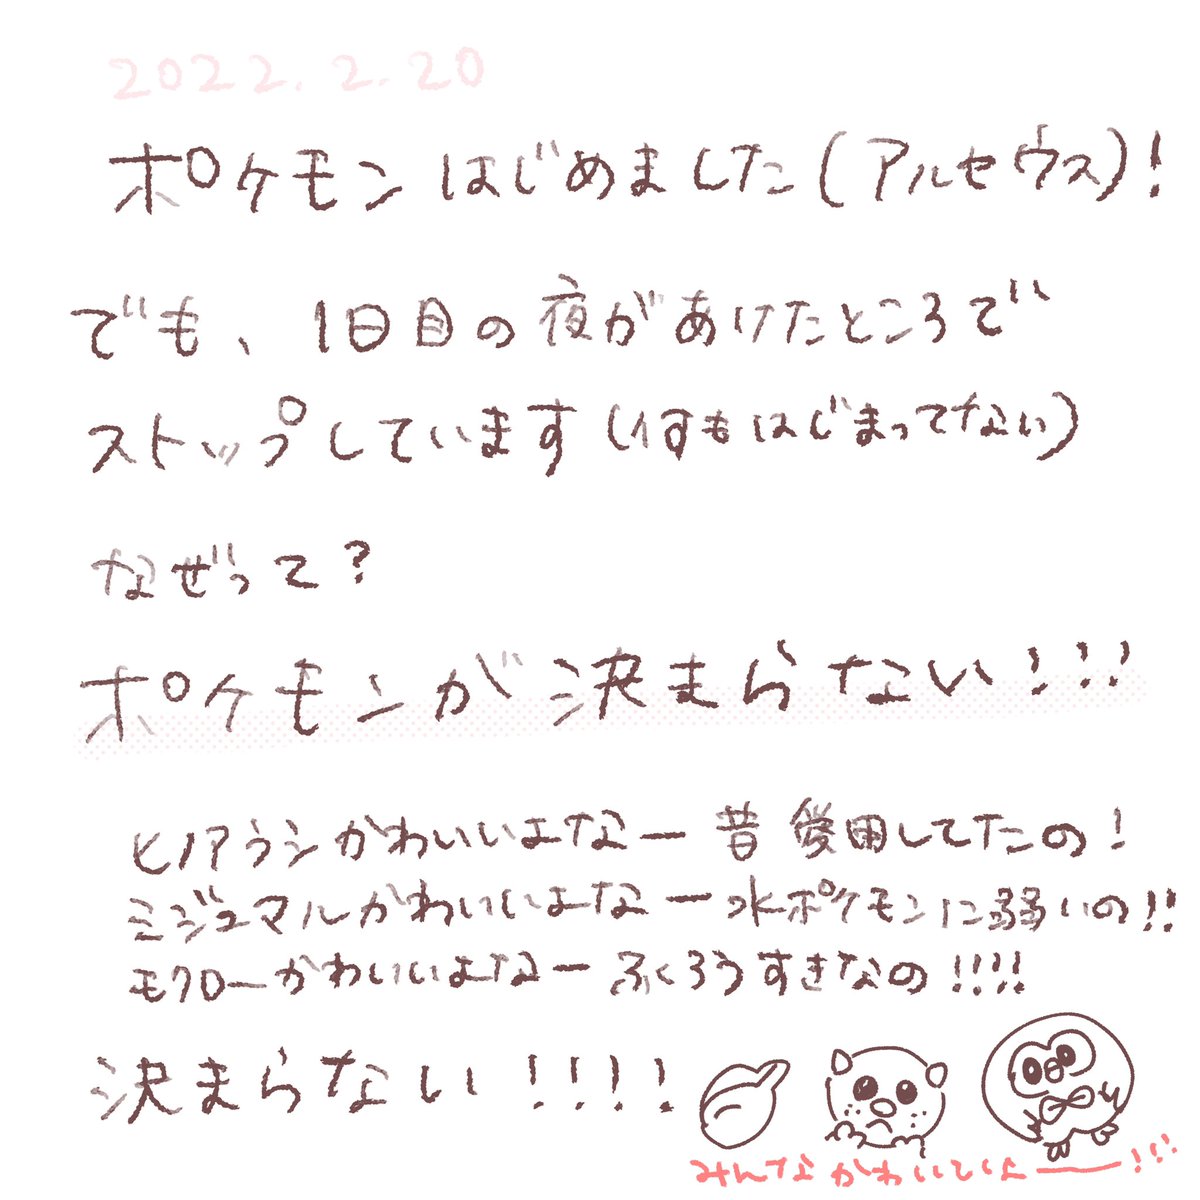 2022.2.20
ポケモンはじめました(アルセウス)!
でも、1日目の夜があけたところで
ストップしています(何もはじまってない)
なぜって?
ポケモンが決まらない!!!
ヒノアラシかわいいよなー昔愛用してたの!
ミジュマルかわいいよなー水ポケモンに弱いの!!
モクローかわいいよなーふくろうすきなの!!!!
決まらない!!!!
みんなかわいいよー!!!